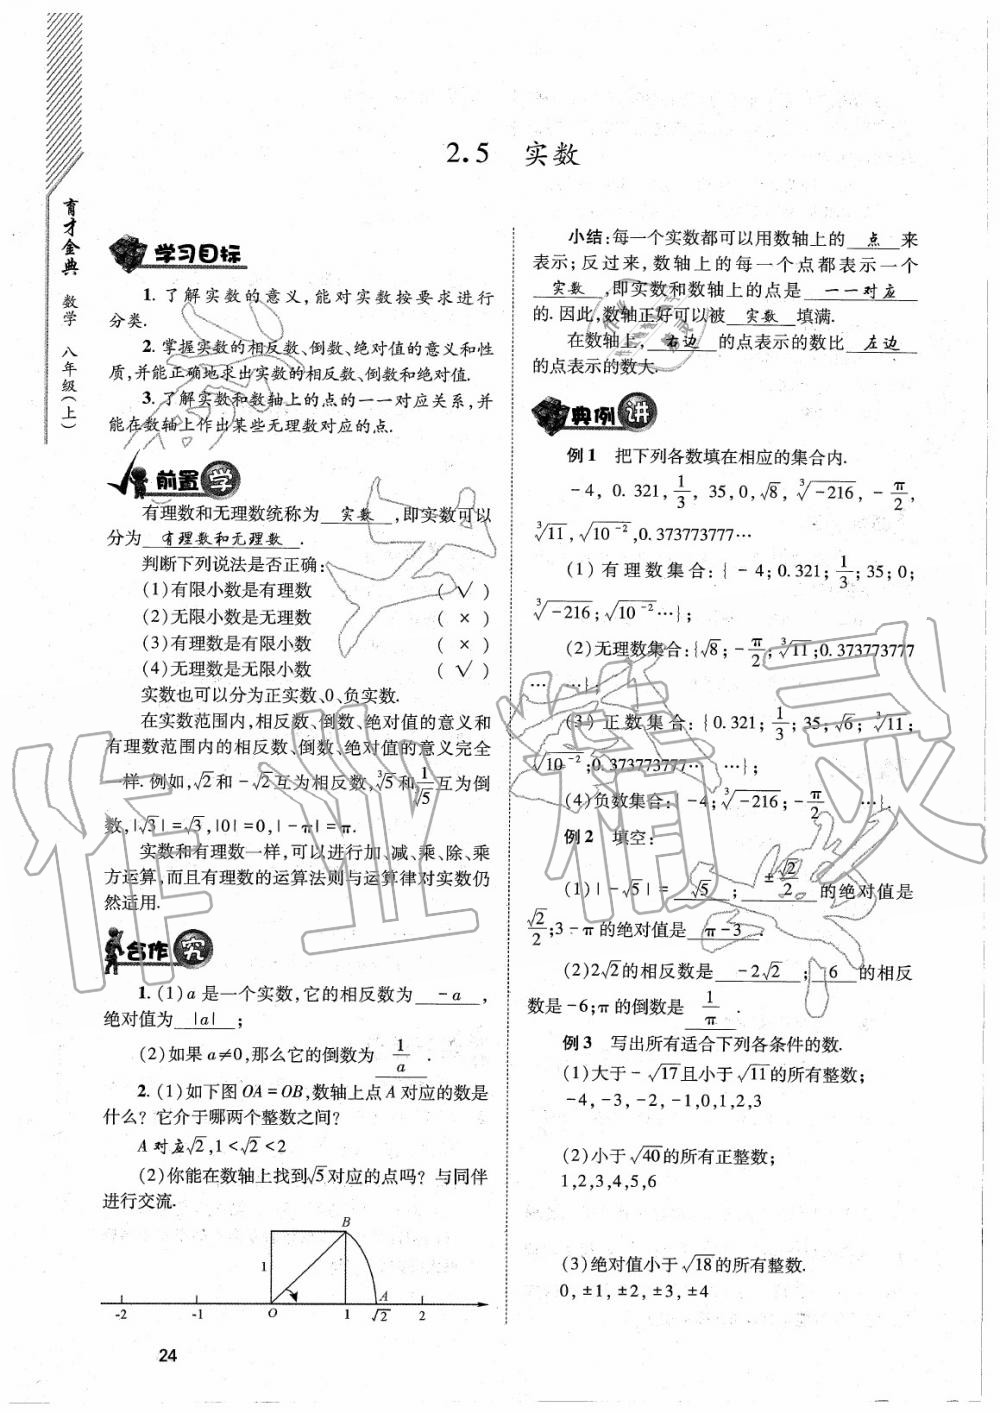 2.5 实数
育才金典 数学 八年级(上)
学习目标
1. 了解实数的意义,能对实数按要求进行
分类.
2. 掌握实数的相反数、倒数、绝对值的意义和性
质,并能正确地求出实数的相反数、倒数和绝对值.
3. 了解实数和数轴上的点的一一对应关系,并
能在数轴上作出某些无理数对应的点.
前置 学
有理数和无理数统称为 实数 ,即实数可以
分为 有理数和无理数 .
判断下列说法是否正确:
(1)有限小数是有理数 ( √ )
(2)无限小数是无理数 ( × )
(3)有理数是有限小数 ( × )
(4)无理数是无限小数 ( √ )
实数也可以分为正实数、0、负实数.
在实数范围内,相反数、倒数、绝对值的意义和
有理数范围内的相反数、倒数、绝对值的意义完全
一样. 例如,√2和-√2互为相反数,∛5和1/∛5互为倒
数,|√3|=√3,|0|=0,|-π|=π.
实数和有理数一样,可以进行加、减、乘、除、乘
方运算,而且有理数的运算法则与运算律对实数仍
然适用.
合作 究
1. (1)a 是一个实数,它的相反数为 -a ,
绝对值为 |a| ;
(2)如果 a≠0,那么它的倒数为 1/a .
2. (1)如下图 OA=OB,数轴上点 A 对应的数是
什么? 它介于哪两个整数之间?
A 对应√2,1<√2<2
(2)你能在数轴上找到√5对应的点吗? 与同伴
进行交流.
B
1
A
-2 -1 O 1 √2 2
24
小结:每一个实数都可以用数轴上的 点 来
表示;反过来,数轴上的每一个点都表示一个
实数 ,即实数和数轴上的点是 一一对应
的. 因此,数轴正好可以被 实数 填满.
在数轴上, 右边 的点表示的数比 左边
的点表示的数大.
典例 讲
例 1 把下列各数填在相应的集合内.
-4, 0.321, 1/3, 35, 0, √8, ∛-216, -π/2,
∛11, √10⁻², 0.373773777…
(1) 有理数集合:{ -4; 0.321; 1/3; 35; 0;
∛-216; √10⁻² …};
(2)无理数集合:{√8; -π/2; ∛11; 0.373773777
… …};
(3) 正数集合:{0.321; 1/3; 35; √6; ∛11;
√10⁻²; 0.373773777… …};
(4)负数集合:{-4; ∛-216; -π/2 …}.
例 2 填空:
(1)|-√5|= √5 ; ±√2/2 的绝对值是
√2/2;3-π的绝对值是 π-3 .
(2)2√2的相反数是 -2√2 ; 6 的相反
数是-6;π的倒数是 1/π .
例 3 写出所有适合下列各条件的数.
(1)大于-√17且小于√11的所有整数;
-4,-3,-2,-1,0,1,2,3
(2)小于√40的所有正整数;
1,2,3,4,5,6
(3)绝对值小于√18的所有整数.
0, ±1, ±2, ±3, ±4
作业精灵